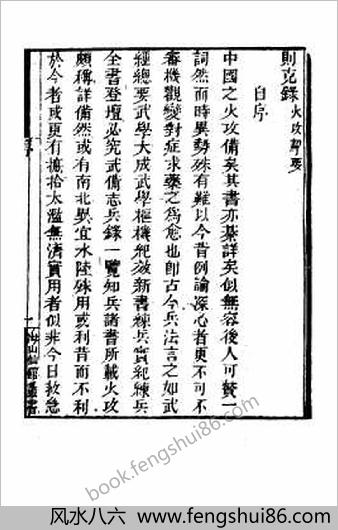 則克錄 火攻挈要
自序
中國之火攻備矣其書亦綦詳矣似無容後人可贅一
詞然而時異勢殊有難以今昔例論深心者更不可不
審機觀變對症求藥之為愈也即古今兵法言之如武
經總要武學大成武學樞機紀效新書練兵實紀練兵
全書登壇必究武備志兵錄一覽知兵諸書所載火攻
頗稱詳備然或有南北異宜水陸殊用或利昔而不利
於今者或更有摭拾太濫無濟實用者似非今日救急
海山仙館叢書
book.fengshui86.com
风水八六 www.fengshui86.com